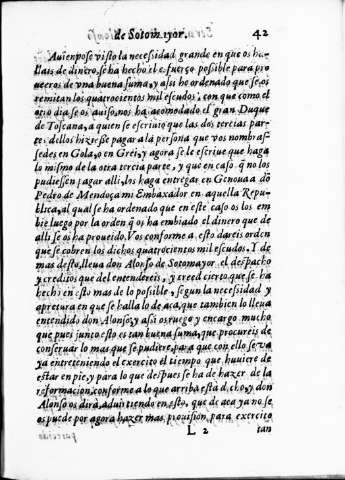 de Sotom iyor. 42
Auienpose visto la necessidad grande en que os ha-
llais de dinero, se ha hecho el esfuerço possible para pro
ueeros de vna buena suma, y assi he ordenado que se os
remitan los quatrocientos mil escudos, con que como el
otro dia se os auiso, nos ha acomodado el gran Duque
de Toscana, a quien se escriuio que las dos tercias par-
tes dellos hiziesse pagar a la persona que vos nombras-
sedes en Gola, o en Grei, y agora se le escriue que haga
lo mismo de la otra tercia parte, y que en caso q̃ no los
pudiessen pagar alli, los haga entregar en Genoua a dõ
Pedro de Mendoça mi Embaxador en aquella Repu-
blica, al qual se ha ordenado que en este caso os los em
bie luego por la orden q̃ os ha embiado el dinero que de
alli se os ha proueido. Vos conforme a esto dareis ordẽ
que se cobren los dichos quatrocientos mil escudos. Y de
mas desto, lleua don Alonso de Sotomayor el despacho
y creditos que del entendereis, y creed cierto que se ha
hecho en esto mas de lo possible, segun la necessidad y
apretura en que se halla lo de aca, que tambien lo lleua
entendido don Alonso, y assi os ruego y encargo mucho
que pues junto esto es tan buena suma, que procureis de
conseruar lo mas que se pudiere, para que con ello se va
ya entreteniendo el exercito el tiempo que huuiere de
estar en pie, y para lo que despues se ha de hazer de la
reformacion, conforme a lo que arriba està dicho, y don
Alonso os dirà, aduirtiendo en esto, que de aca ya no se
os puede por agora hazer mas prouision, para exercito
L 2 tan